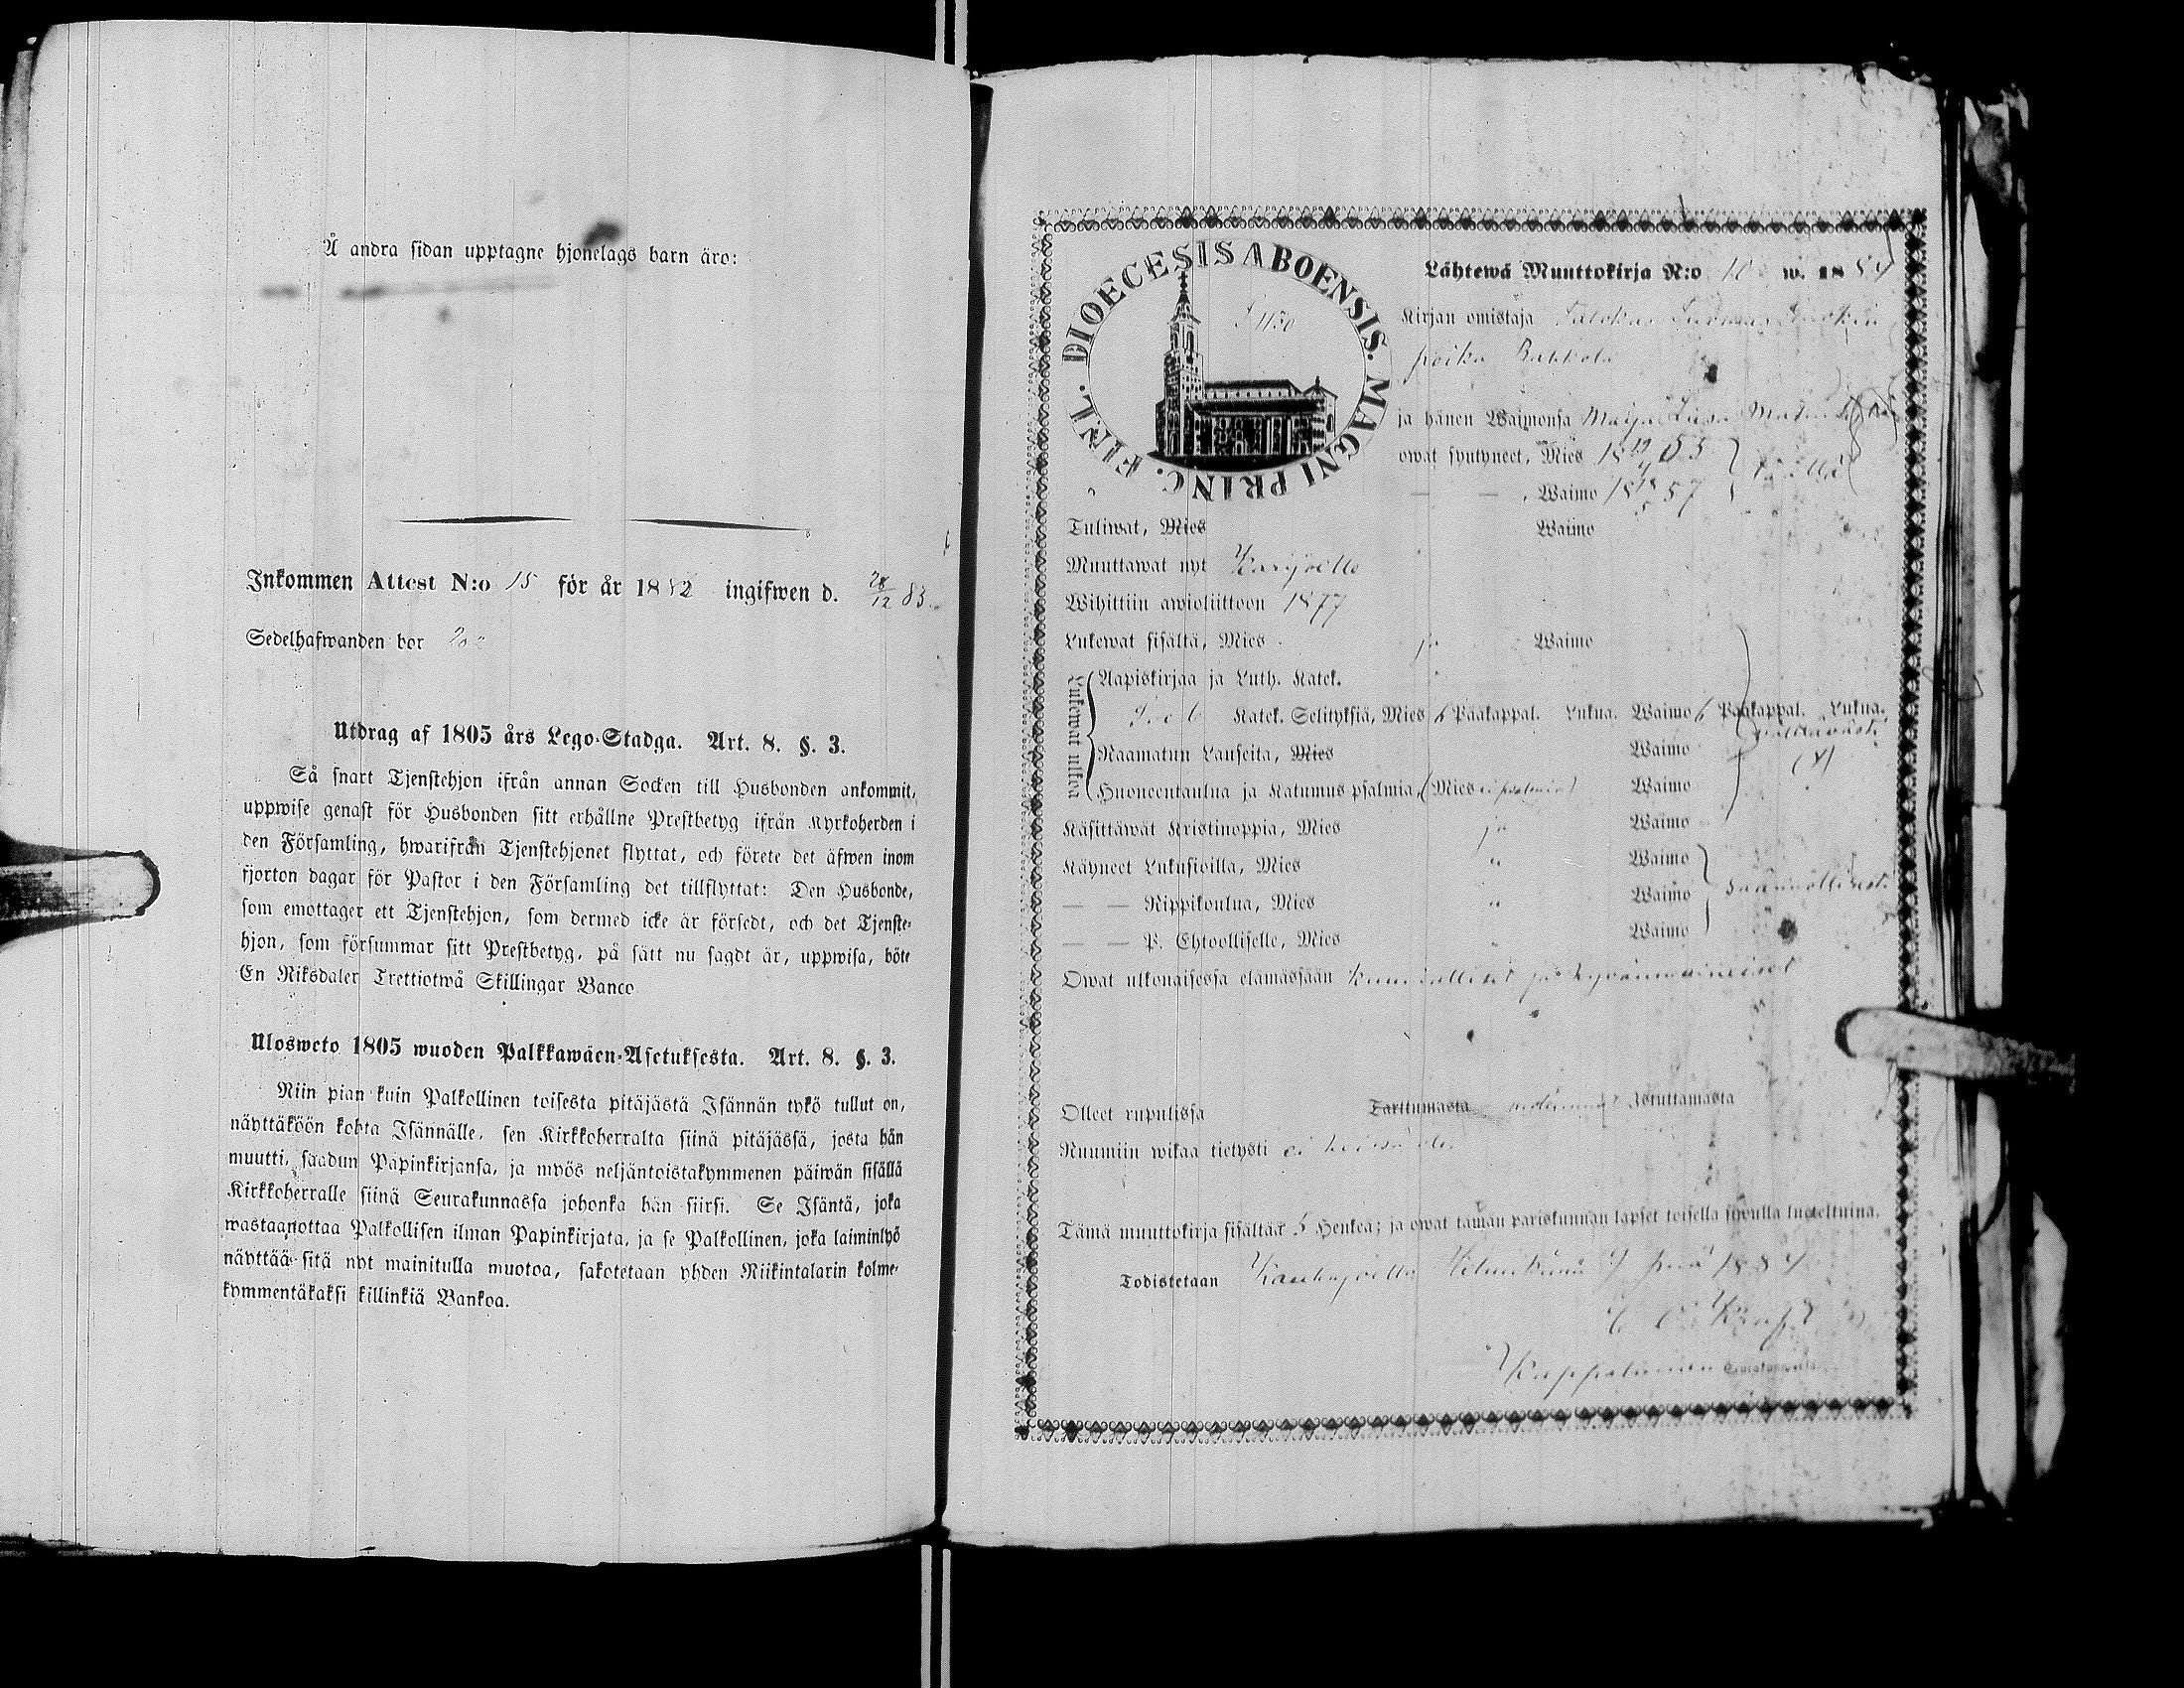 Å andra sidan upptagne hjonelags barn äro:
Inkommen Attest N:o 15 för år 1882 ingifwen d. 28/12 83.
Sedelhafwanden bor
Utdrag af 1805 års Lego-Stadga. Art. 8. §. 3.
Så snart Tjenstehjon ifrån annan Socken till Husbonden ankommit,
uppwise genast för Husbonden sitt erhållne Prestbetyg ifrån Kyrkoherden i
den Församling, hwarifrån Tjenstehjonet flyttat, och förete det äfwen inom
fjorton dagar för Pastor i den Församling det tillflyttat: Den Husbonde,
som emottager ett Tjenstehjon, som dermed icke är försedt, och det Tjenste-
hjon, som försummar sitt Prestbetyg, på sätt nu sagdt är, uppwisa, böte
En Riksdaler Trettiotwå Skillingar Banco
Ulosweto 1805 wuoden Palkkawäen-Asetuksesta. Art. 8. §. 3.
Niin pian kuin Palkollinen toisesta pitäjästä Isännän tykö tullut on,
näyttäköön kohta Isännälle, sen Kirkkoherralta siinä pitäjässä, josta hän
muutti, saadun Papinkirjansa, ja myös neljäntoistakymmenen päiwän sisällä
Kirkkoherralle siinä Seurakunnassa johonka hän siirsi. Se Isäntä, joka
wastaanottaa Palkollisen ilman Papinkirjata, ja se Palkollinen, joka laiminlyö
näyttää sitä nyt mainitulla muotoa, sakotetaan yhden Riikintalarin kolme-
kymmentäkaksi killinkiä Bankoa.
DIOECESIS ABOENSIS. MAGNI PRINC. FINL.
Lähtewä Muuttokirja N:o 10 w. 1884
Kirjan omistaja
poika
ja hänen Waimonsa Maija Liisa
owat syntyneet, Mies 18 19/4 53
— — , Waimo 18 57
Tuliwat, Mies Waimo
Muuttawat nyt Karijoelle
Wihittiin awioliittoon 1877
Lukewat sisältä, Mies ja Waimo
Lukewat ulkoa
Aapiskirjaa ja Luth. Katek.
Katek. Selityksiä, Mies 6 Pääkappal. Lukua. Waimo 6 Pääkappal. Lukua.
välttävästi
Raamatun Lauseita, Mies Waimo
Huoneentaulua ja Katumuspsalmia, (Mies Waimo
Käsittäwät Kristinoppia, Mies ja Waimo
Käyneet Lukusioilla, Mies " Waimo
säännöllisest.
— — Rippikoulua, Mies " Waimo
— — P. Ehtoolliselle, Mies " Waimo
Owat ulkonaisessa elämässään kunnialliset ja hyvänmaineiset
Olleet rupulissa Tarttumasta Istuttamasta
Ruumiin wikaa tietysti ei
Tämä muuttokirja sisältää 5 Henkeä; ja owat tämän pariskunnan lapset toisella siwulla lueteltuina.
Todistetaan Kauhajoella Helmikuun 1884
Kappalainen